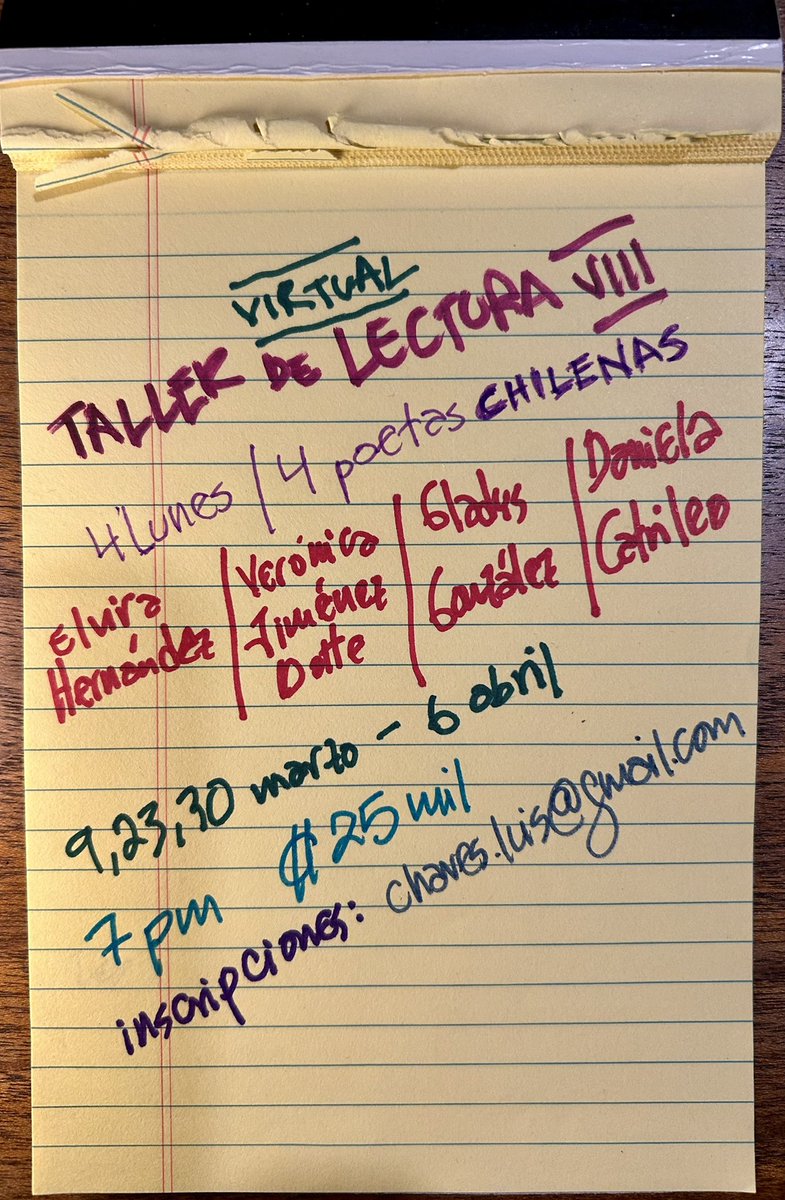 VIRTUAL
TALLER DE LECTURA VIII
4 Lunes / 4 poetas CHILENAS
Elvira Hernández | Verónica Jiménez Dotte | Gladys González | Daniela Catrileo
9, 23, 30 marzo - 6 abril
7 pm ₡ 25 mil
inscripciones: chaves.luis@gmail.com